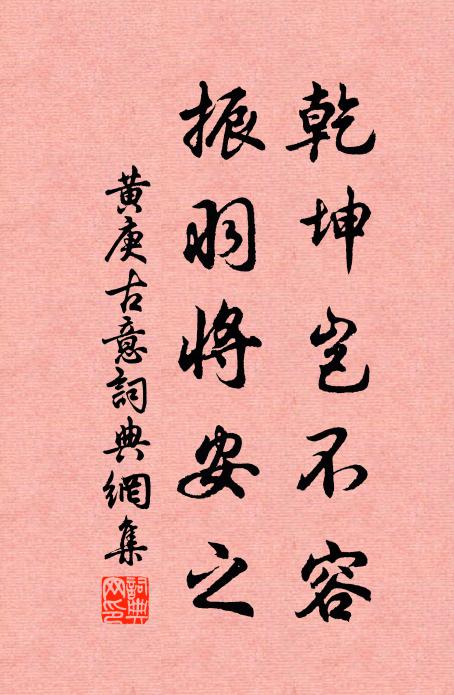 乾坤豈不容
振羽將安之
黃庚古意詞典網集
詞典網印